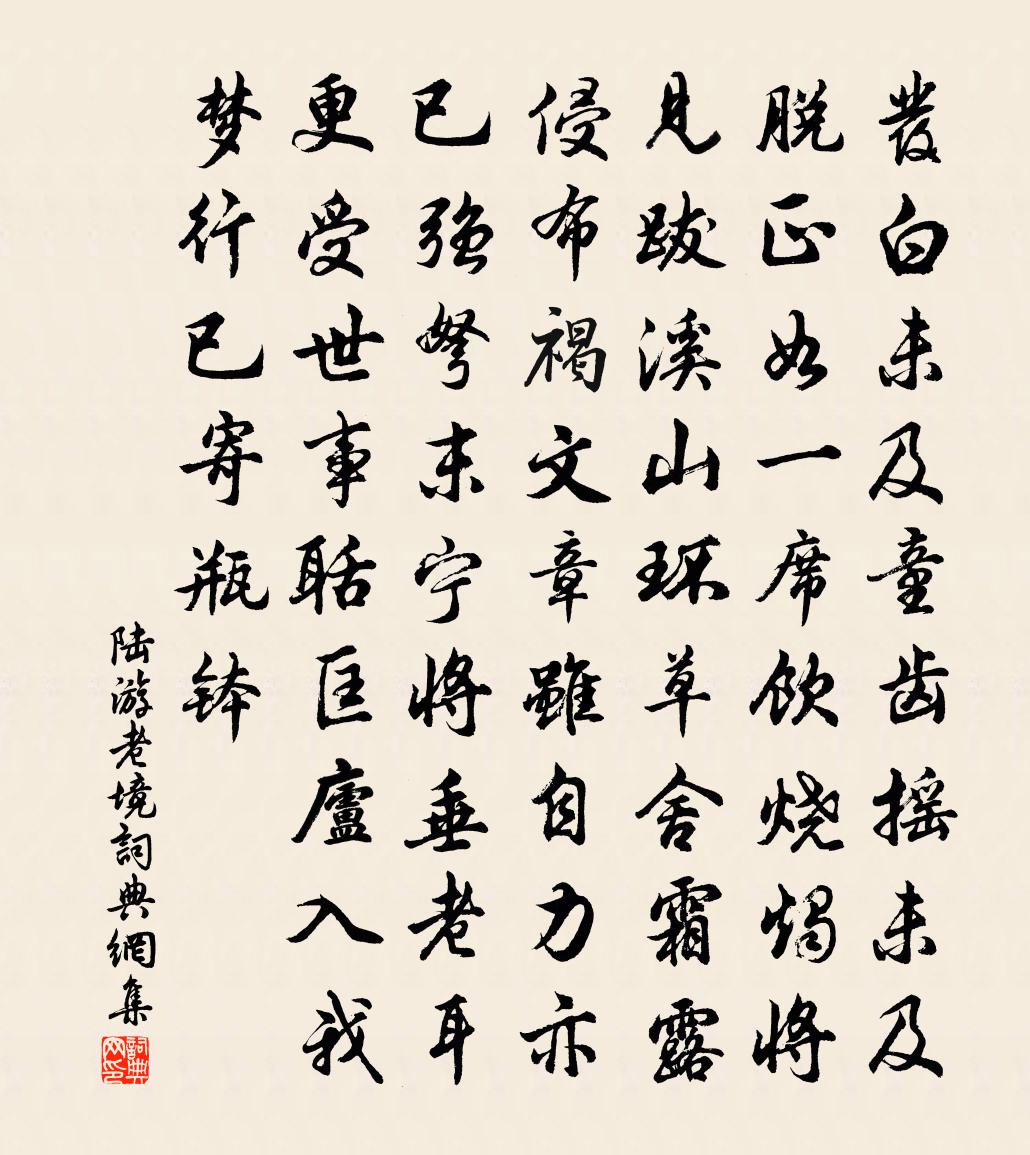 發白未及童齿摇未及
脱正如一席饮烧烛将
见跋溪山环草舍霜露
侵布褐文章虽自力亦
已强弩末宁将垂老耳
更受世事聒匡庐入我
梦行已寄瓶钵
陆游老境詞典網集
詞典网印